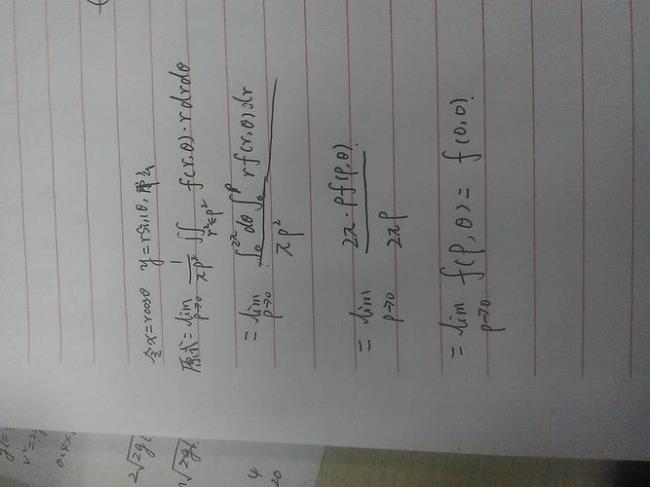 令x=rcosθ y=rsinθ,那么
原式=lim_{ρ→0} 1/(πρ²) ∬_{r²≤ρ²} f(r,θ)·rdrdθ
=lim_{ρ→0} ∫₀^{2π} dθ ∫₀^ρ rf(r,θ)dr / πρ²
=lim_{ρ→0} 2π·ρf(ρ,θ) / 2πρ
=lim_{ρ→0} f(ρ,θ)=f(0,0).
2√2gl
√2gl